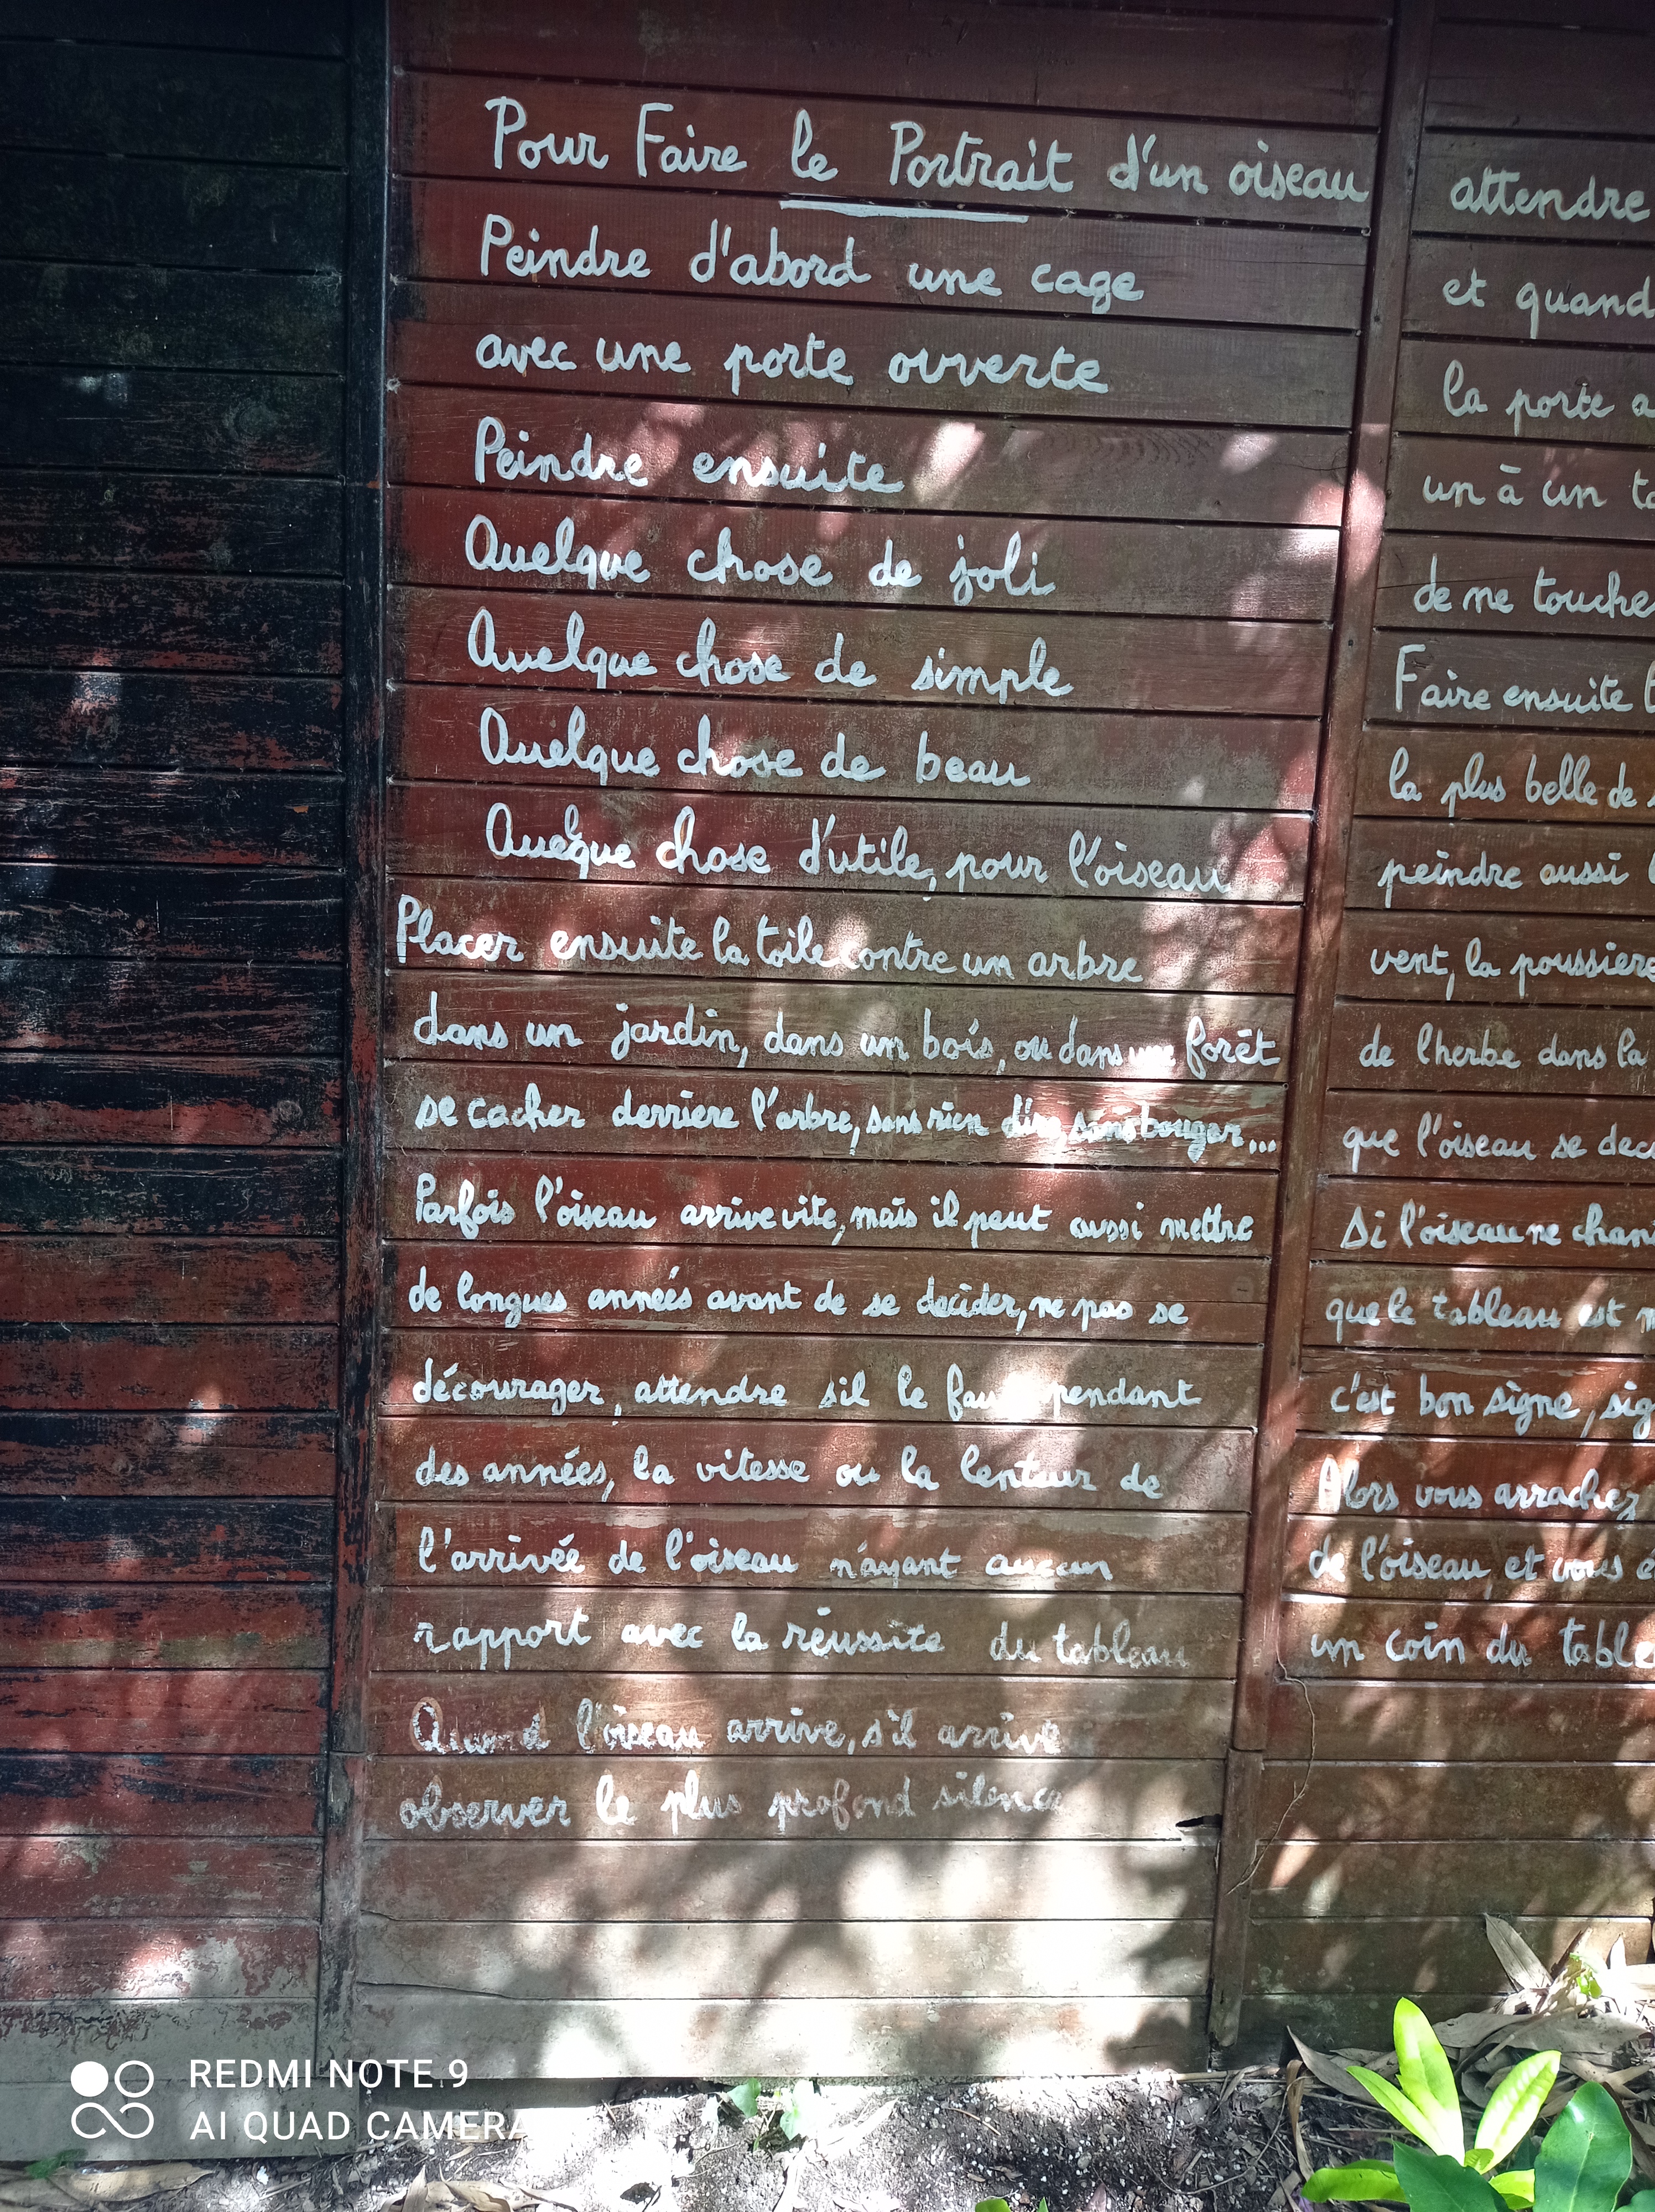 Pour Faire le Portrait d'un oiseau
Peindre d'abord une cage
avec une porte ouverte
Peindre ensuite
Quelque chose de joli
Quelque chose de simple
Quelque chose de beau
Quelque chose d'utile, pour l'oiseau
Placer ensuite la toile contre un arbre
dans un jardin, dans un bois, ou dans une forêt
se cacher derriere l'arbre, sans rien dire, sans bouger...
Parfois l'oiseau arrive vite, mais il peut aussi mettre
de longues années avant de se décider, ne pas se
décourager, attendre s'il le faut pendant
des années, la vitesse ou la lenteur de
l'arrivée de l'oiseau n'ayant aucun
rapport avec la réussite du tableau
Quand l'oiseau arrive, s'il arrive
observer le plus profond silence
attendre
et quand
la porte a
un à un
de ne
Faire ensuite
la plus belle de
peindre aussi
vent, la poussière
de l'herbe dans la
que l'oiseau se
Si l'oiseau ne
que le tableau est
c'est bon signe,
Alors vous arrachez
de l'oiseau, et vous
un coin du
REDMI NOTE 9
AI QUAD CAMERA